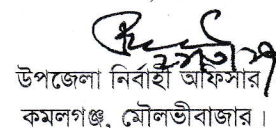 উপজেলা নির্বাহী অফিসার
কমলগঞ্জ, মৌলভীবাজার।